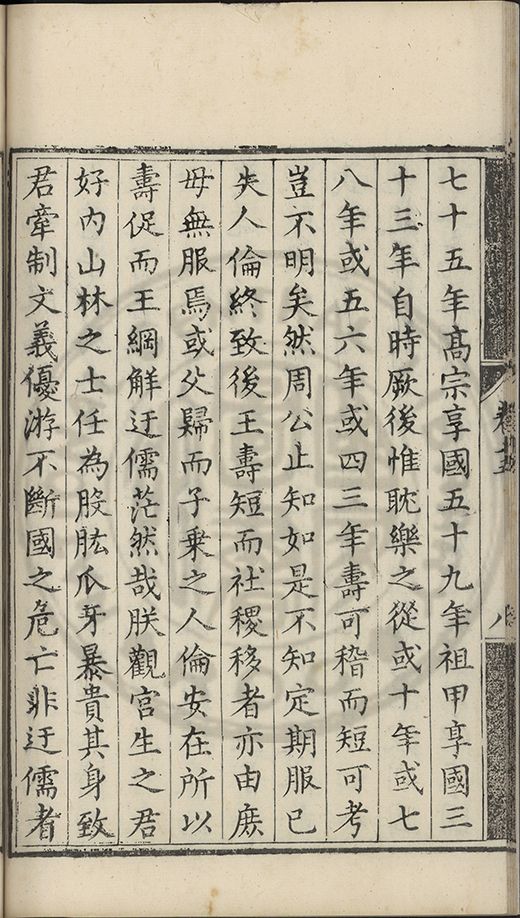 七十五年髙宗享國五十九年祖甲享國三
十三年自時厥後惟耽樂之從或十年或七
八年或五六年或四三年壽可稽而短可考
豈不明矣然周公止知如是不知定期服已
失人倫終致後王壽短而社稷移者亦由庶
母無服焉或父歸而子乗之人倫安在所以
壽促而王綱解迂儒茫然哉朕觀宫生之君
好内山林之士任為股肱爪牙暴貴其身致
君牽制文義優游不斷國之危亡非迂儒者
八